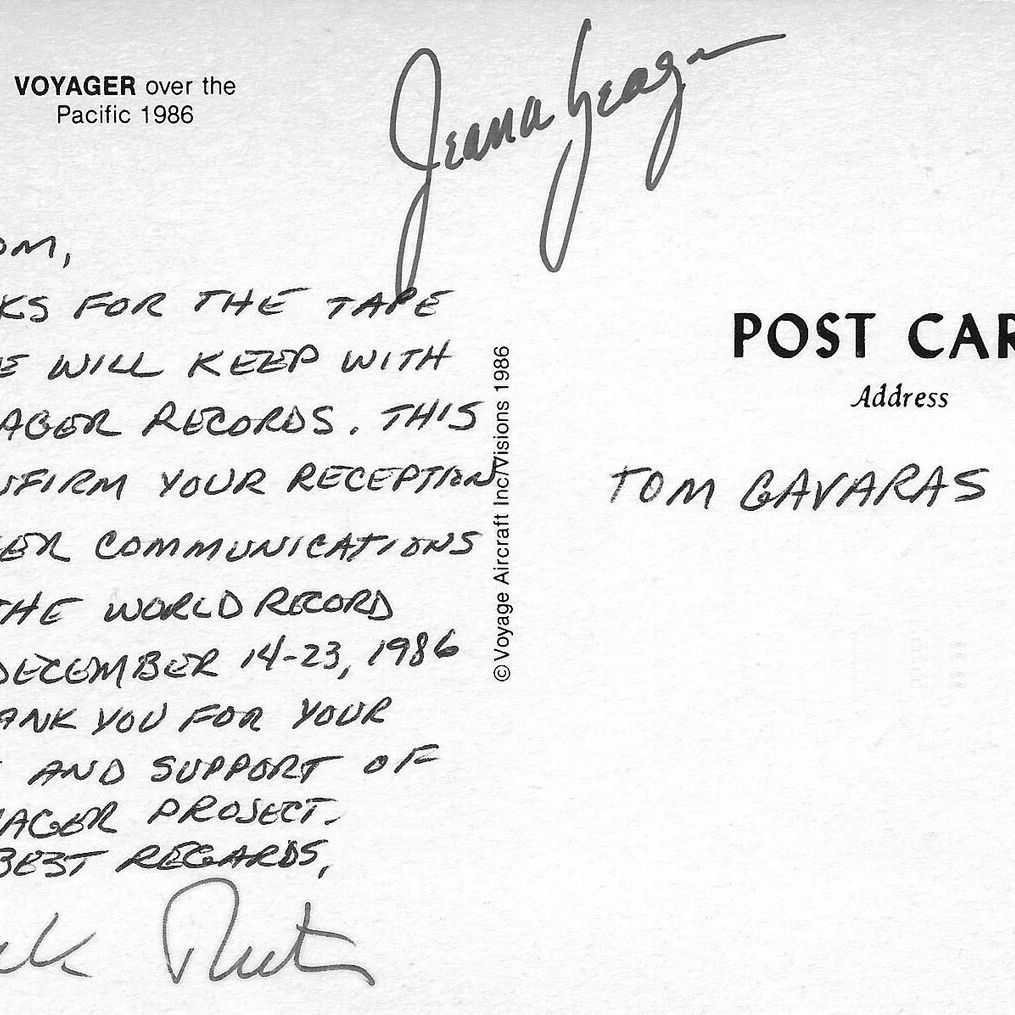 VOYAGER over the
Pacific 1986
Jeana Yeager
OM,
KS FOR THE TAPE
E WILL KEEP WITH
AGER RECORDS. THIS
NFIRM YOUR RECEPTION
ER COMMUNICATIONS
THE WORLD RECORD
DECEMBER 14-23, 1986
ANK YOU FOR YOUR
AND SUPPORT OF
YAGER PROJECT.
BEST REGARDS,
ck Rutan
©Voyage Aircraft Inc/Visions 1986
POST CAR
Address
TOM GAVARAS